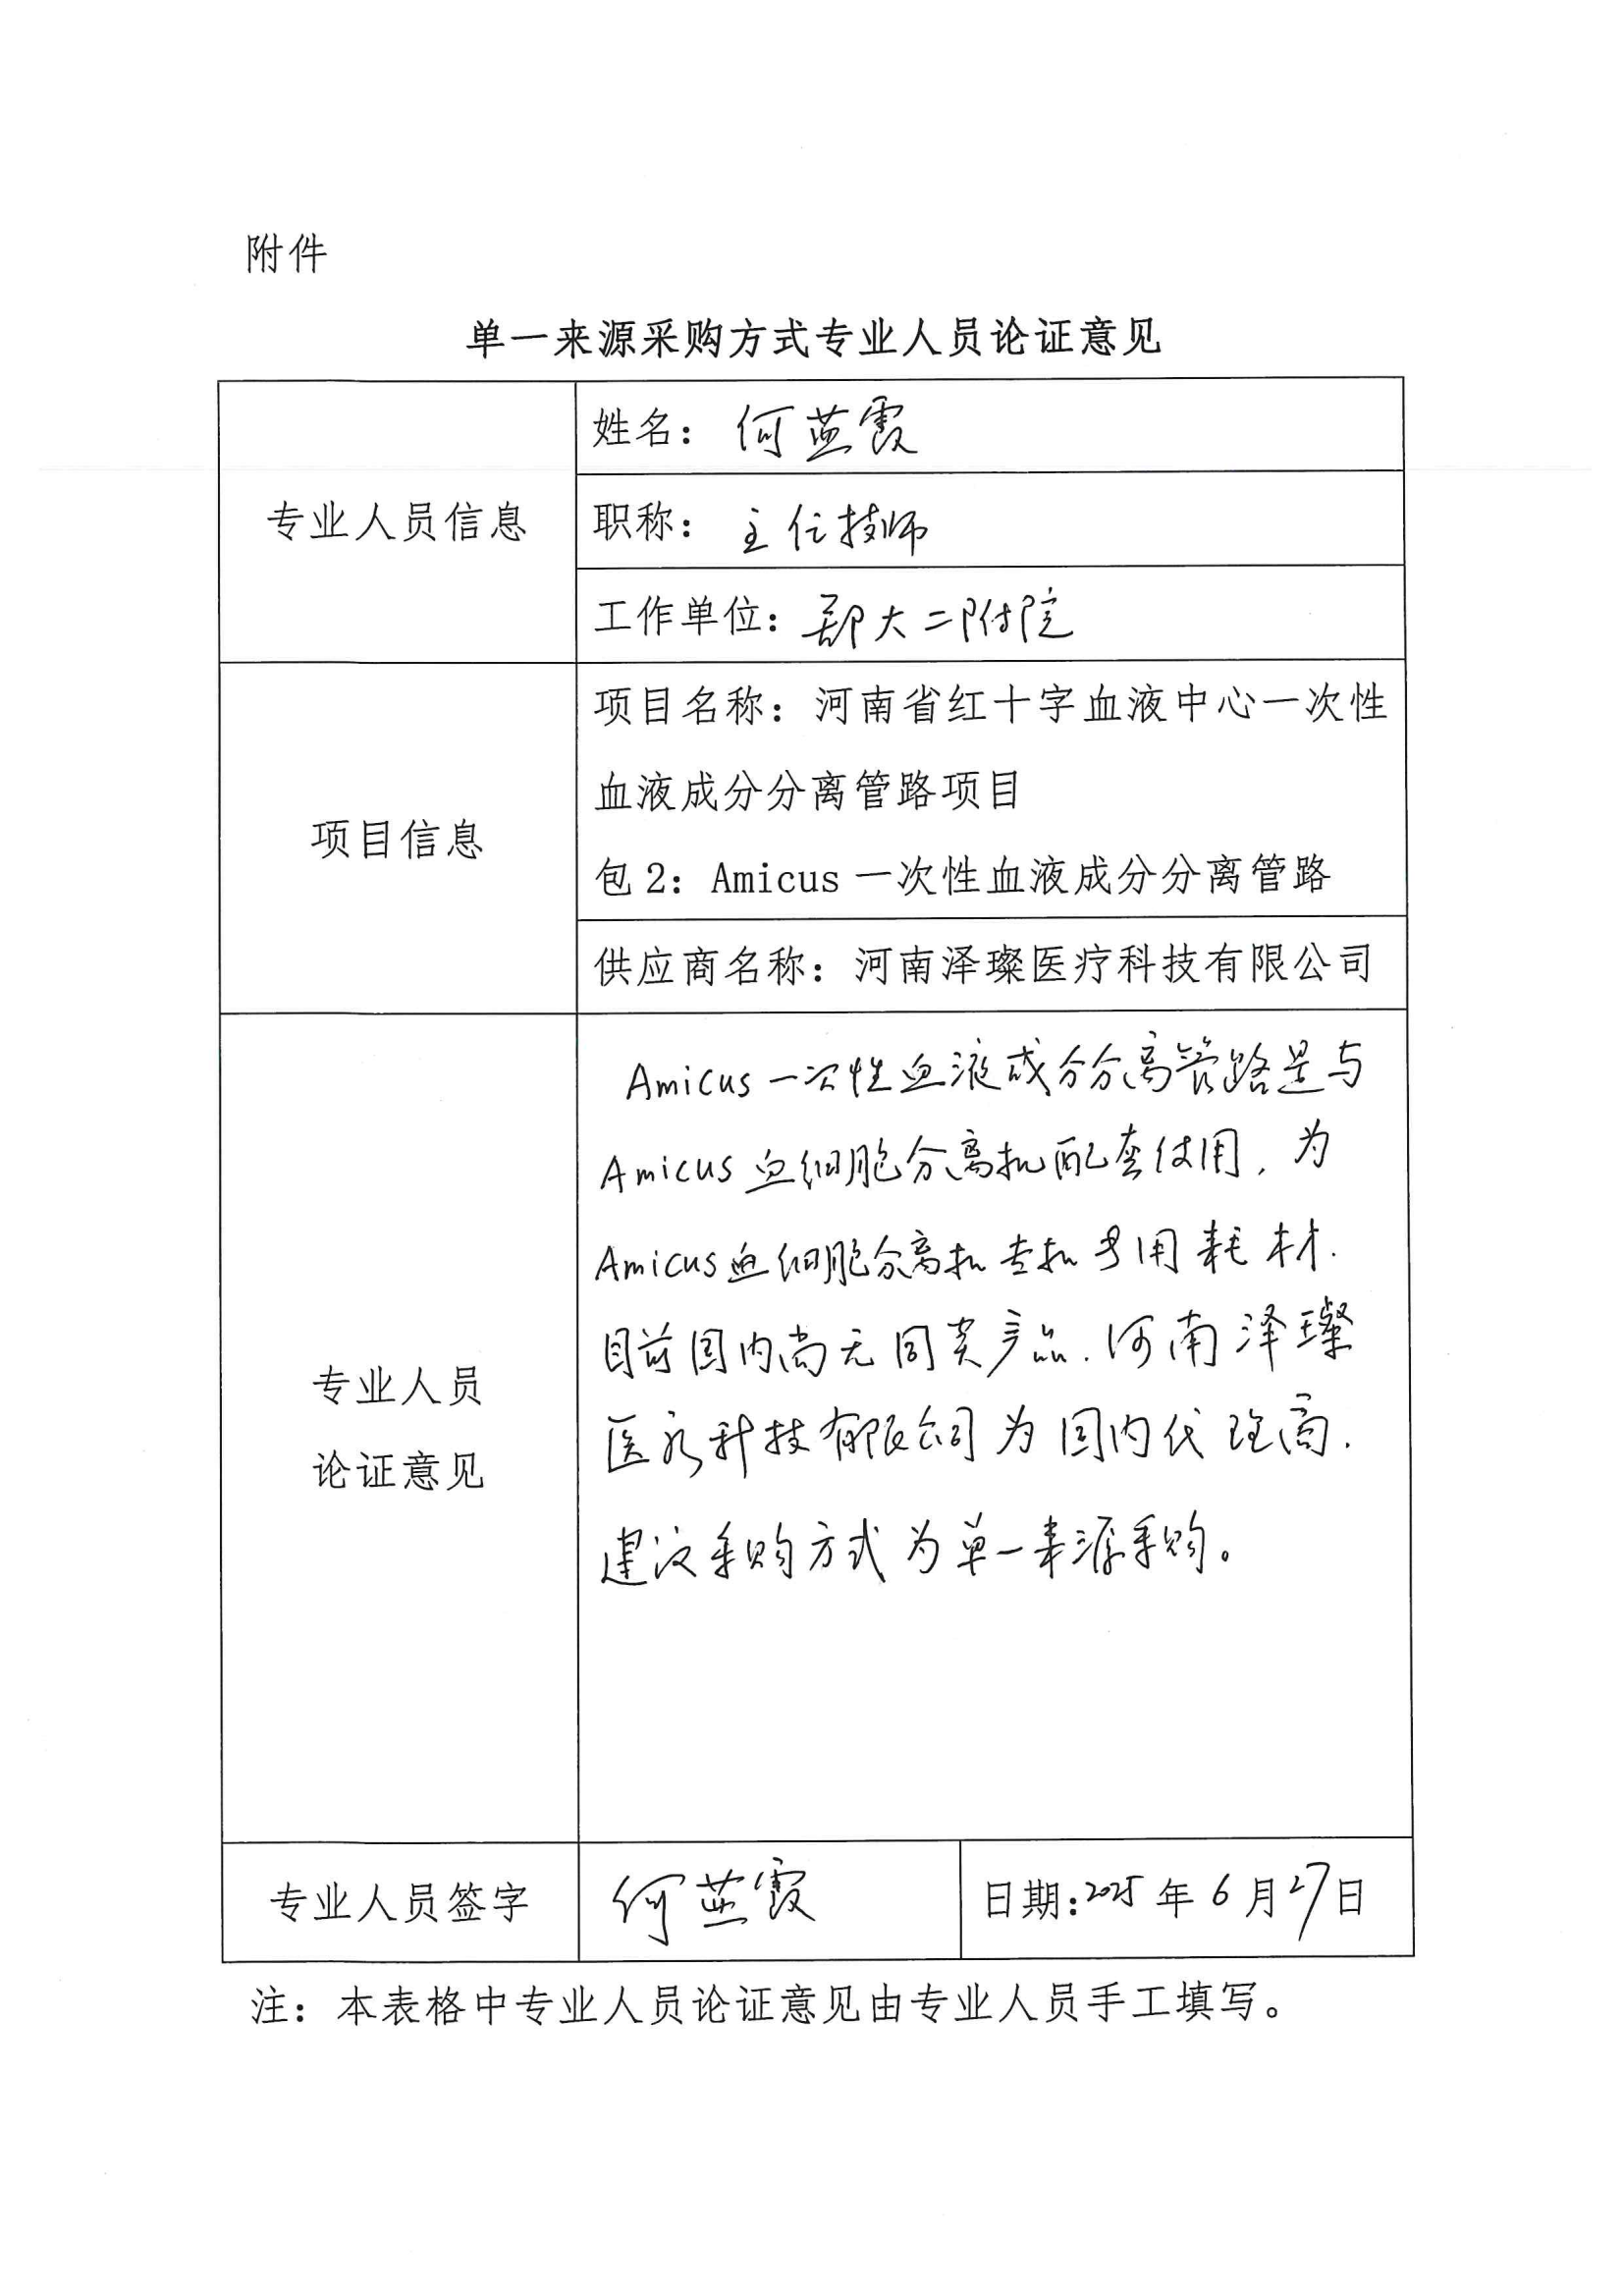 附件
单一来源采购方式专业人员论证意见
专业人员信息
姓名：何燕霞
职称：主任技师
工作单位：郑大二附院
项目信息
项目名称：河南省红十字血液中心一次性
血液成分分离管路项目
包2：Amicus一次性血液成分分离管路
供应商名称：河南泽璨医疗科技有限公司
专业人员
论证意见
Amicus一次性血液成分分离管路是与
Amicus血细胞分离机配套使用，为
Amicus血细胞分离机专机专用耗材.
目前国内尚无同类产品.河南泽璨
医疗科技有限公司为国内代理商.
建议采购方式为单一来源采购。
专业人员签字
何燕霞
日期:2025年6月27日
注：本表格中专业人员论证意见由专业人员手工填写。